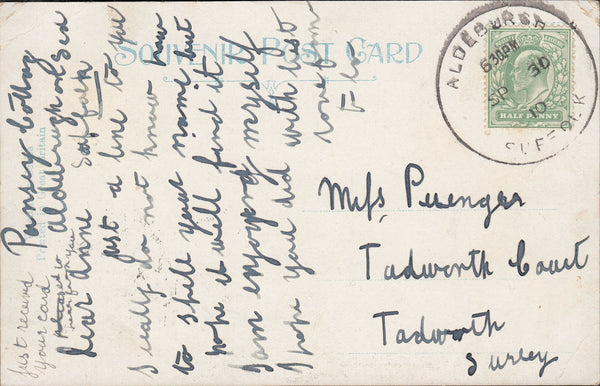 SOUVENIR POST CARD
ALDEBURGH
6 30 PM
SP 30
10
SUFFOLK
HALF PENNY
Pansy Cottag
Aldeburgh on Sea
Suffolk
Dear Anne
Just a line to you
I really do not know how
to spell your name but
hope it will find it
I am enjoying myself
I hope you did with best
love from
Flo
Just received
your card
pleased to
hear from you
Miss Puenger
Tadworth Court
Tadworth
Surrey